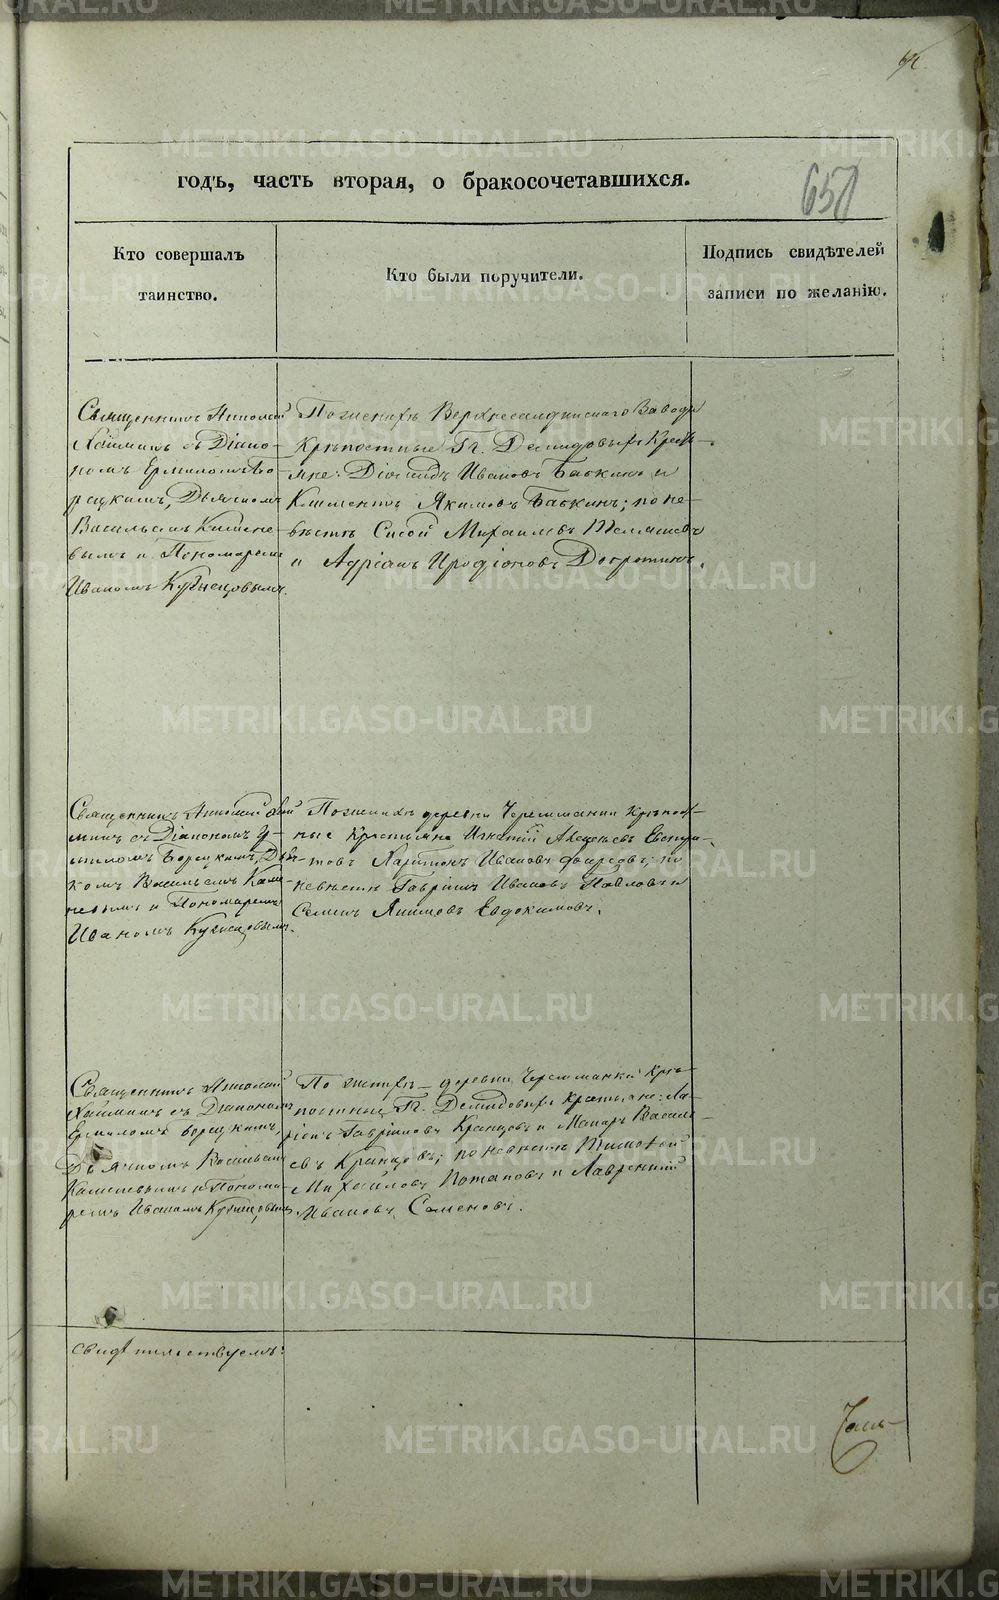 годъ, часть вторая, о бракосочетавшихся.
658
Кто совершалъ
таинство.
Кто были поручители.
Подпись свидѣтелей
записи по желанію.
Священникъ Николай
съ Діако-
номъ Ермиломъ Бо-
рецкимъ, Дьячкомъ
Васильемъ Камене-
вымъ и Пономаремъ
Иваномъ Кузнецовымъ.
По женихѣ Верхнесалдинскаго Завода
Крѣпостные Гг. Демидовыхъ Кресть-
яне: Діомидъ Ивановъ Баскинъ и
Климентъ Якимовъ Баскинъ; по не-
вѣстѣ Сисой Михаиловъ
и Адріанъ Иродіоновъ
Священникъ Николай
съ Діакономъ Ер-
миломъ Борецкимъ, Дьяч-
комъ Васильемъ Каме-
невымъ и Пономаремъ
Иваномъ Кузнецовымъ.
По женихѣ деревни Черемшанки крѣпост-
ные Крестьяне Игнатій Алексѣевъ
Харитонъ Ивановъ по
невѣстѣ Гавріилъ Ивановъ Павловъ и
Семенъ Якимовъ Евдокимовъ.
Священникъ Николай
съ Діакономъ
Ермиломъ Борецкимъ,
Дьячкомъ Васильемъ
Каменевымъ и Понома-
ремъ Иваномъ Кузнецовымъ
По женихѣ деревни Черемшанки Крѣ-
постные Гг. Демидовыхъ Крестьяне: Ла-
ріонъ Гавріиловъ Кранцовъ и Макаръ Василь-
евъ Кранцовъ; по невѣстѣ Тимофей
Михайловъ Потаповъ и Лаврентій
Ивановъ Семеновъ.
свидѣтельствуемъ:
METRIKI.GASO-URAL.RU